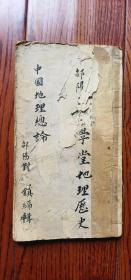 邵陽學堂地理歷史
中國地理總論
邵陽 鎮編輯